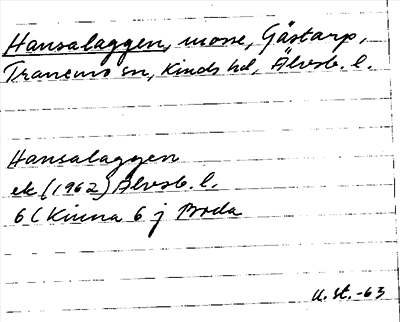 Hansalaggen, mosse, Gåstarp,
Tranemo sn, Kinds hd, Älvsb. l.
Hansalaggen
ek (1962) Älvsb. l.
6 C Kinna 6 j Boda
U. St. -63